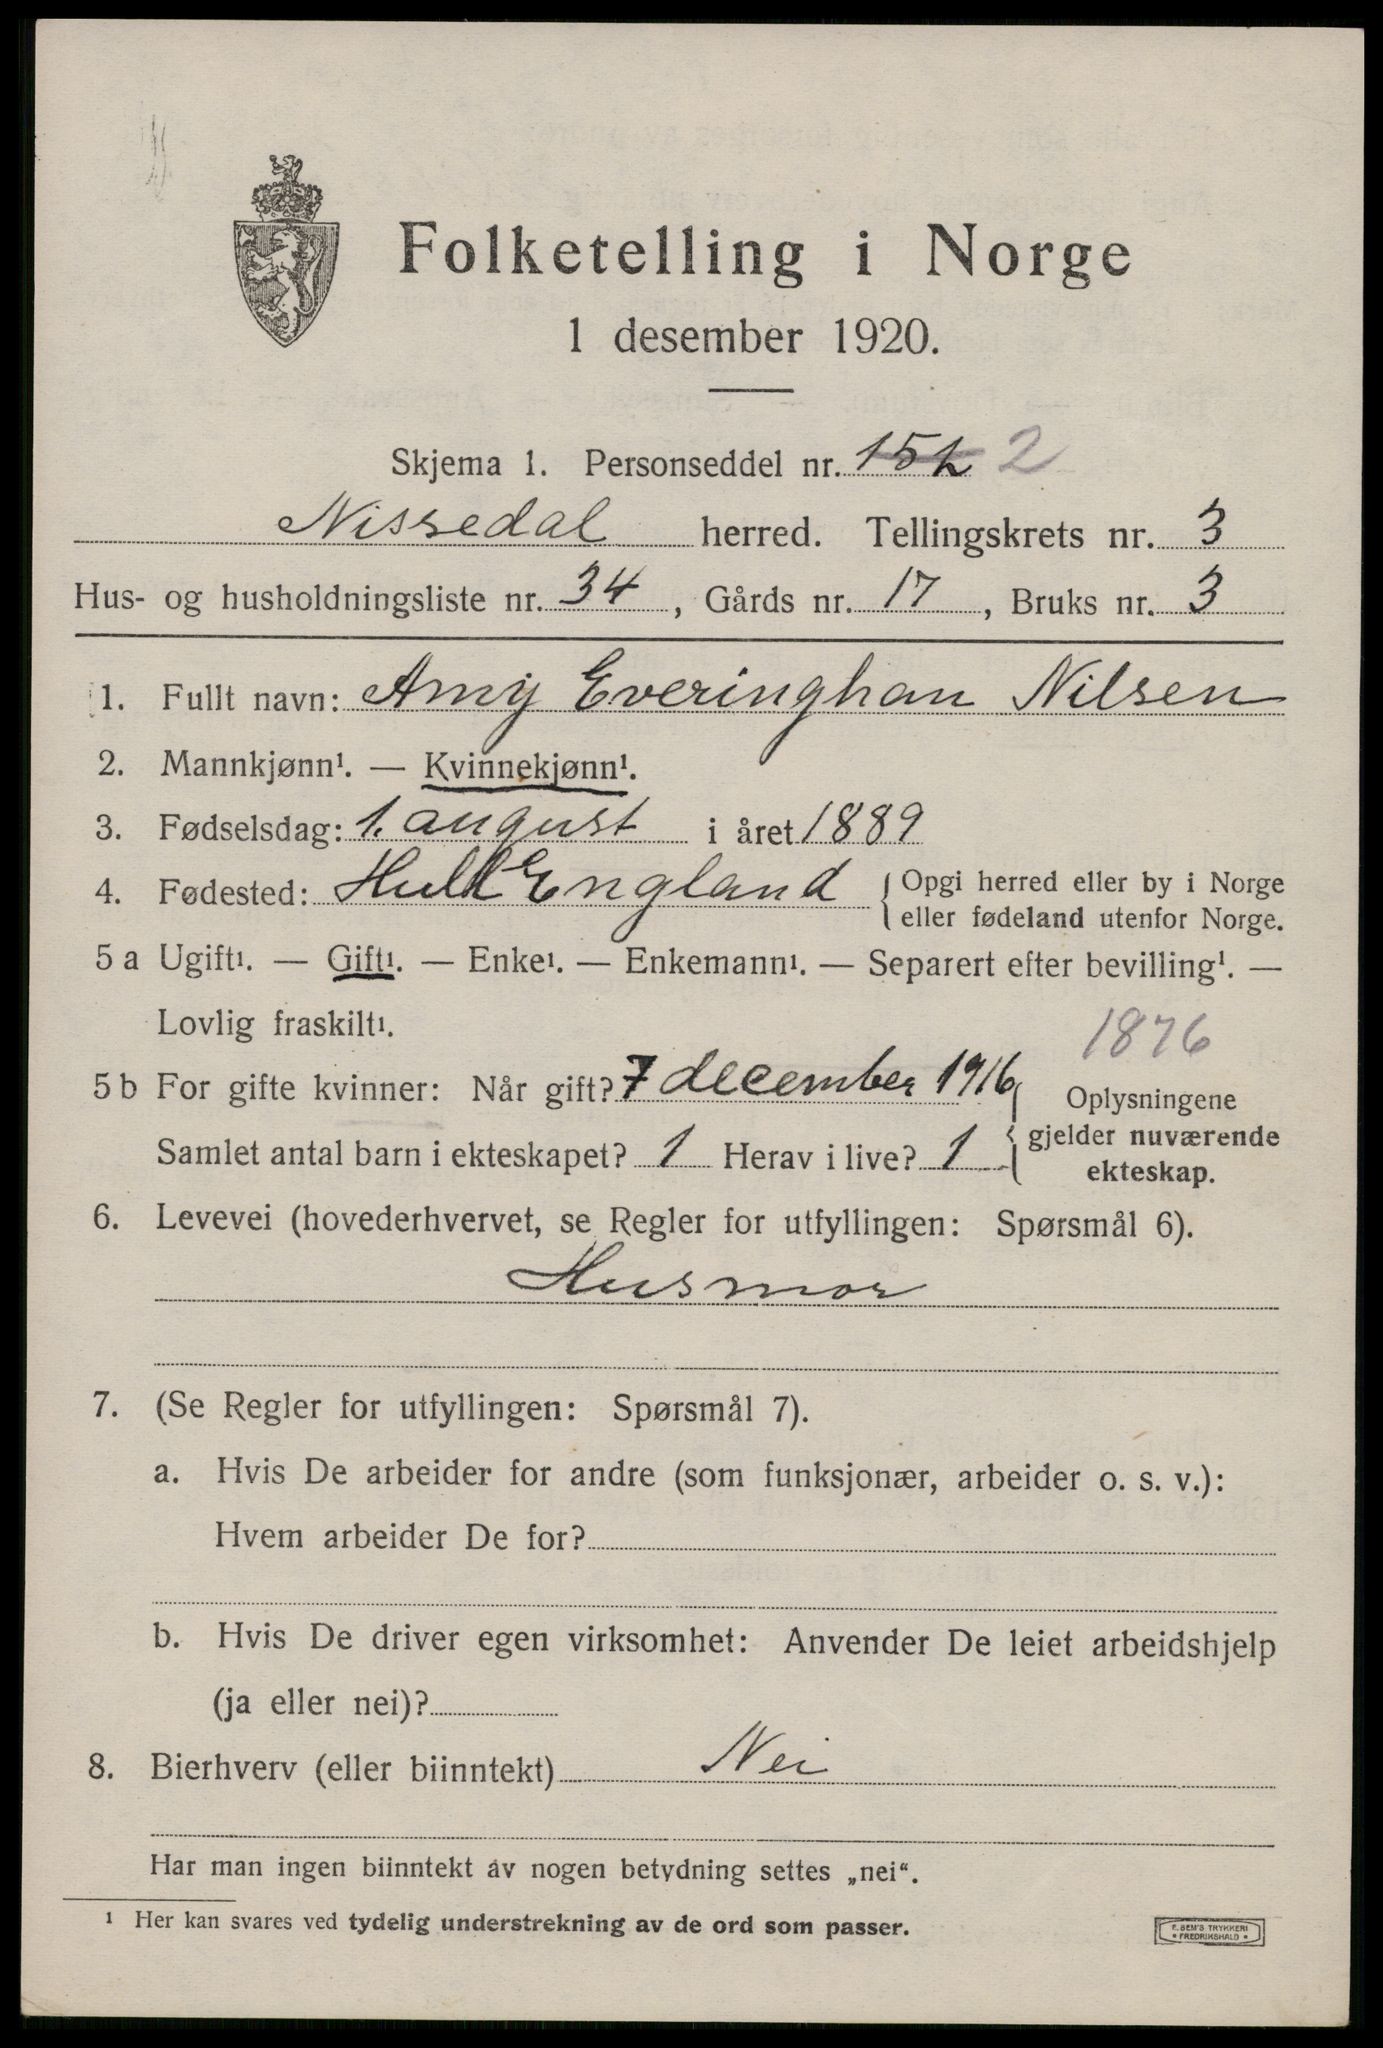 Folketelling i Norge
1 desember 1920.
Skjema 1. Personseddel nr. 152 2
Nissedal herred. Tellingskrets nr. 3
Hus- og husholdningsliste nr. 34, Gårds nr. 17, Bruks nr. 3
1. Fullt navn: Amy Everinghan Nilsen
2. Mannkjønn¹. — Kvinnekjønn¹.
3. Fødselsdag: 1. august i året 1889
4. Fødested: Hull England { Opgi herred eller by i Norge
eller fødeland utenfor Norge.
5 a Ugift¹. — Gift¹. — Enke¹. — Enkemann¹. — Separert efter bevilling¹. —
Lovlig fraskilt¹.
1876
5 b For gifte kvinner: Når gift? 7 december 1916 Oplysningene
Samlet antal barn i ekteskapet? 1 Herav i live? 1 { gjelder nuværende
ekteskap.
6. Levevei (hovederhvervet, se Regler for utfyllingen: Spørsmål 6).
Husmor
7. (Se Regler for utfyllingen: Spørsmål 7).
a. Hvis De arbeider for andre (som funksjonær, arbeider o. s. v.):
Hvem arbeider De for?
b. Hvis De driver egen virksomhet: Anvender De leiet arbeidshjelp
(ja eller nei)?
8. Bierhverv (eller biinntekt) Nei
Har man ingen biinntekt av nogen betydning settes „nei“.
¹ Her kan svares ved tydelig understrekning av de ord som passer.
E. SEM'S TRYKKERI
• FREDRIKSHALD •